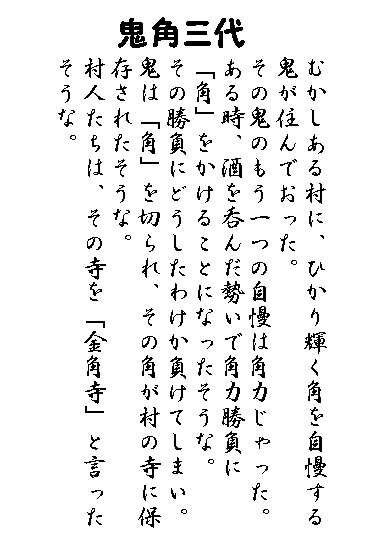 鬼角三代
むかしある村に、ひかり輝く角を自慢する
鬼が住んでおった。
その鬼のもう一つの自慢は角力じゃった。
ある時、酒を呑んだ勢いで角力勝負に
「角」をかけることになったそうな。
その勝負にどうしたわけか負けてしまい。
鬼は「角」を切られ、その角が村の寺に保
存されたそうな。
村人たちは、その寺を「金角寺」と言った
そうな。